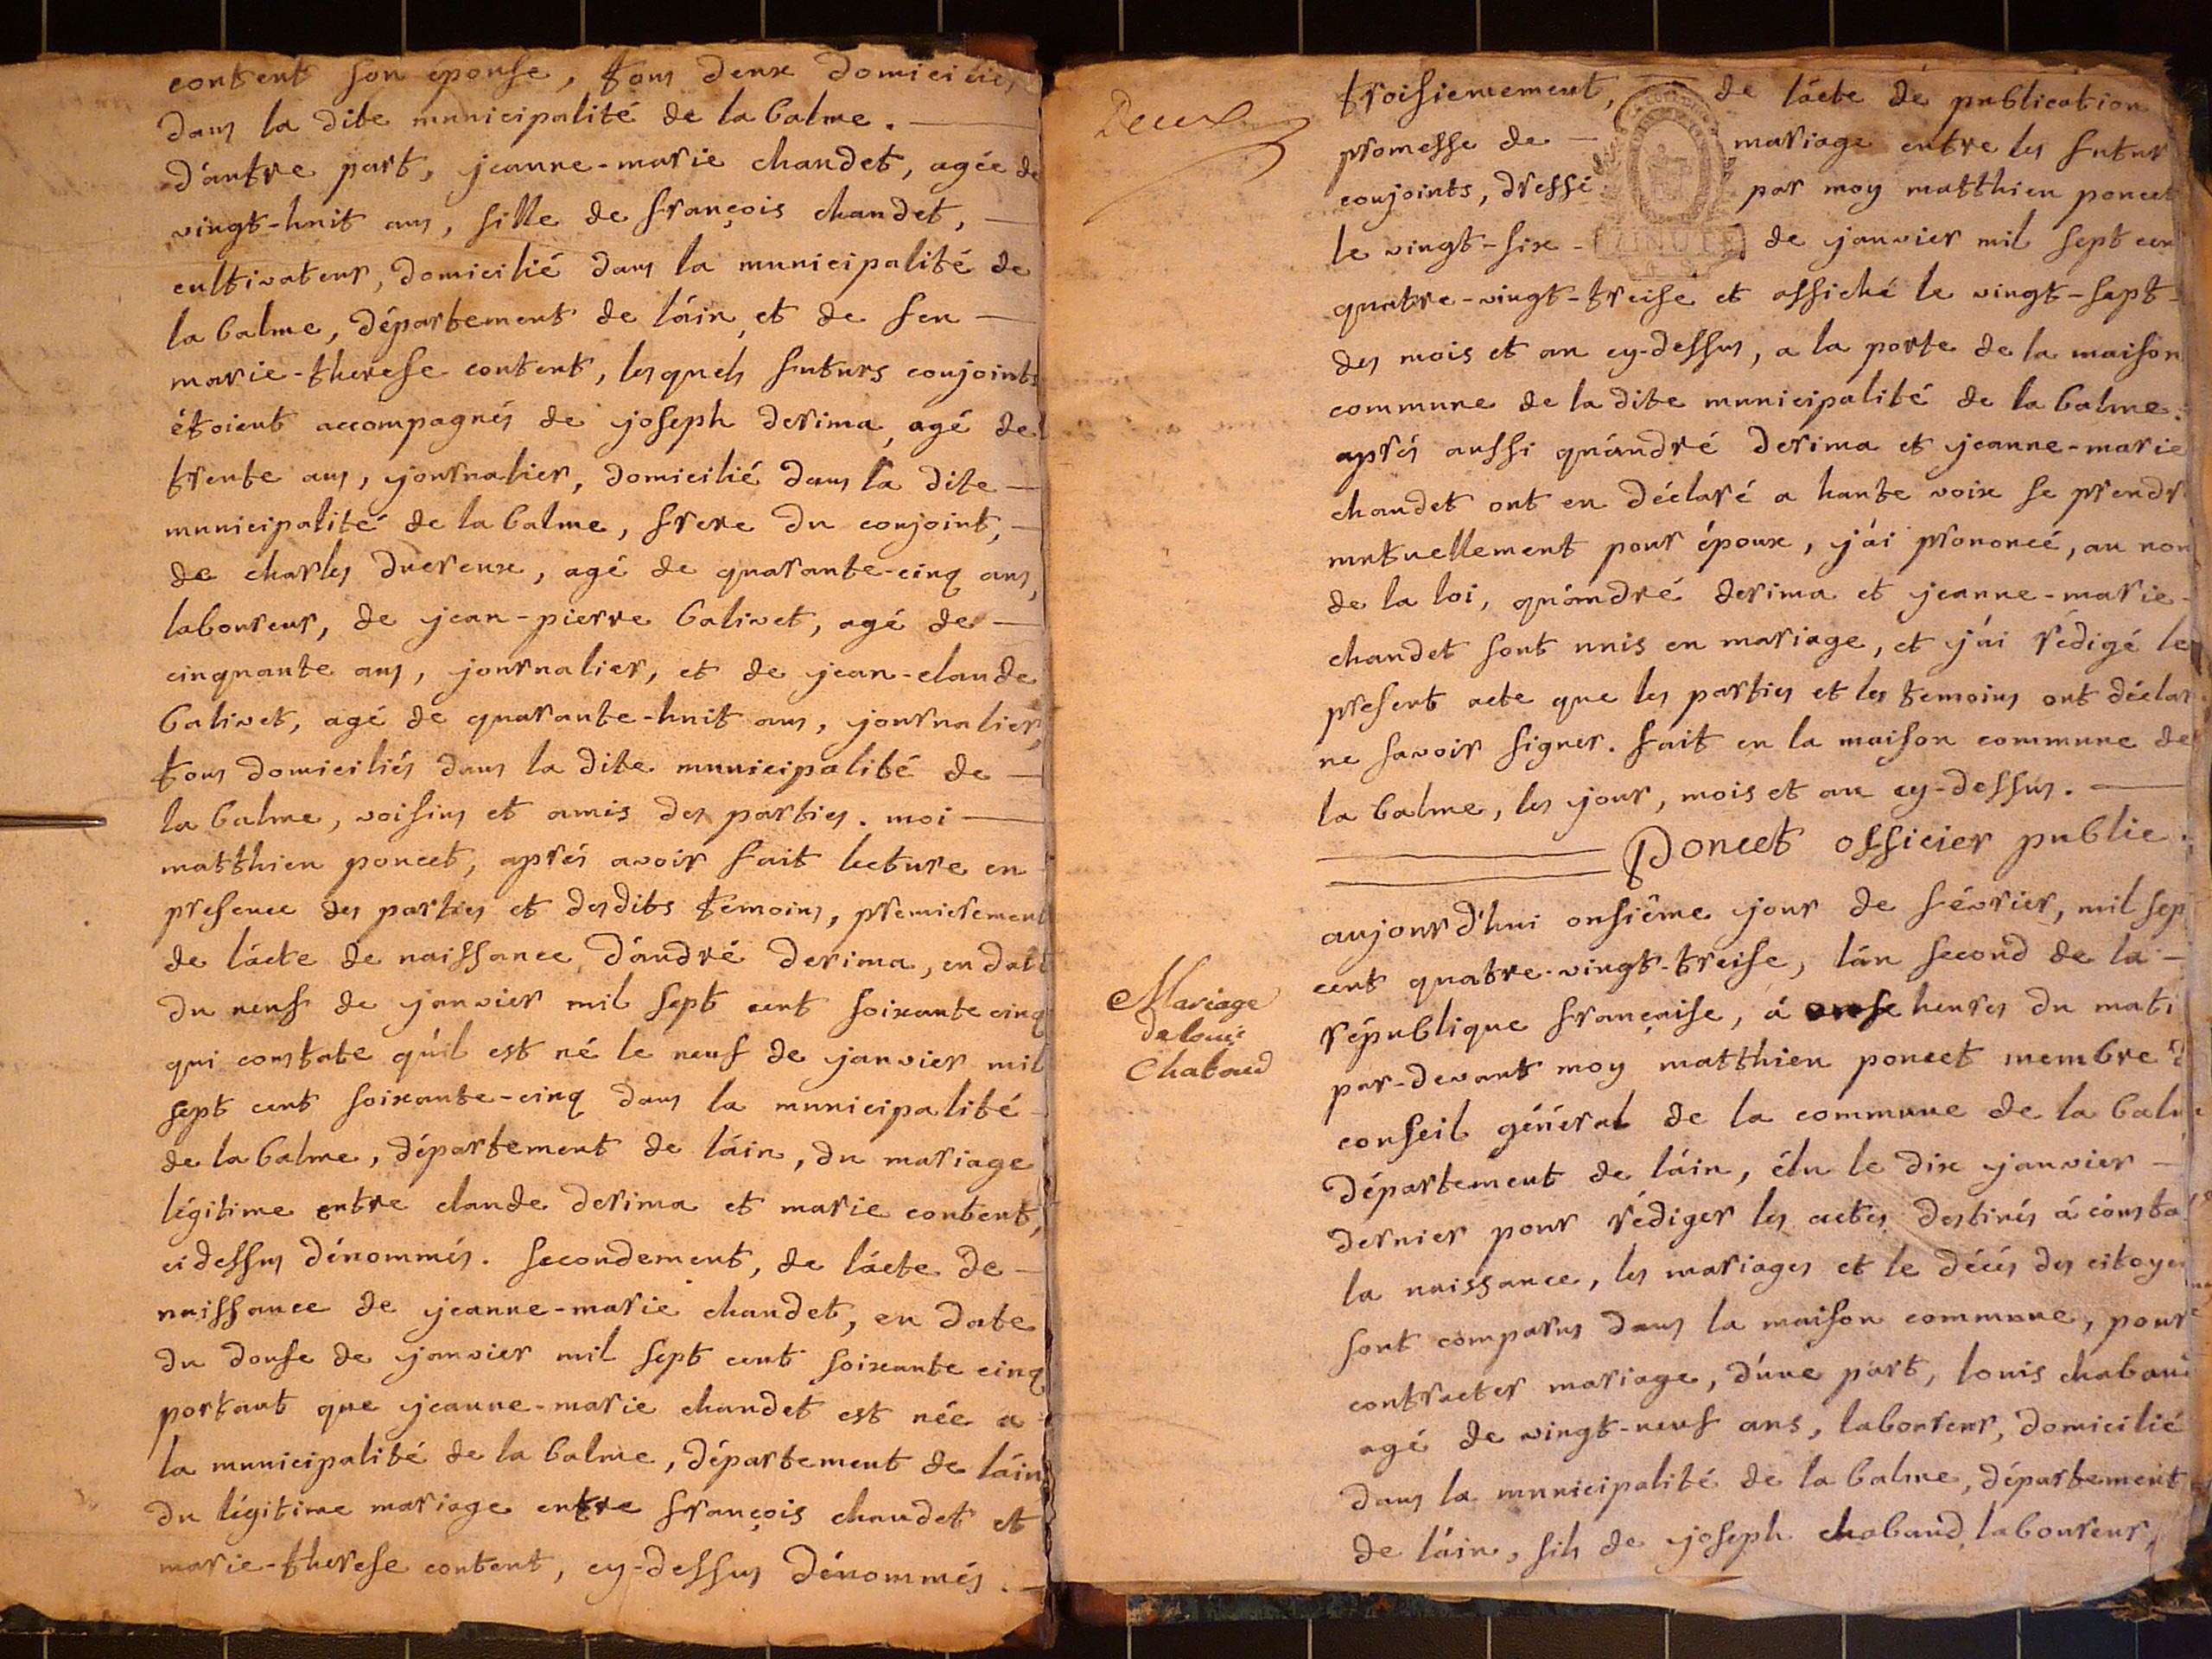 content son épouse, tous deux domiciliés
dans la dite municipalité de la balme.
d'autre part, jeanne-marie chaudet, agée de
vingt-huit ans, fille de françois chaudet,
cultivateur, domicilié dans la municipalité de
la balme, département de láin et de feu
marie-therese content, lesquels futurs conjoints
étoient accompagnés de joseph derima agé de
trente ans, journalier, domicilié dans la dite
municipalité de la balme, frere du conjoint,
de charles ducreux, agé de quarante-cinq ans,
laboureur, de jean-pierre balivet, agé de
cinquante ans, journalier, et de jean-claude
balivet, agé de quarante-huit ans, journalier,
tous domiciliés dans la dite municipalité de
la balme, voisins et amis des parties. moi
matthieu poncet, aprés avoir fait lecture en
presence des parties et desdits temoins, premierement
de lácte de naissance dándré derima, en date
du neuf de janvier mil sept cent soixante cinq
qui constate qu'il est né le neuf de janvier mil
sept cent soixante-cinq dans la municipalité
de la balme, département de láin, du mariage
légitime entre claude derima et marie content,
ci dessus dénommés. secondement, de lácte de
naissance de jeanne-marie chaudet, en date
du douse de janvier mil sept cent soixante cinq
portant que jeanne-marie chaudet est née a
la municipalité de la balme, département de láin
du légitime mariage entre françois chaudet et
marie-therese content, cy-dessus dénommés.
Deux
troisiemement, de lácte de publication
promesse de mariage entre les futur
conjoints, dressé par moy matthieu poncet
le vingt-six de janvier mil sept cen
MINUTE
quatre-vingt-treise et affiché le vingt-sept
des mois et an cy-dessus, a la porte de la maison
commune de la dite municipalité de la balme.
aprés aussi quándré derima et jeanne-marie
chaudet ont eu déclaré a haute voix se prendr
mutuellement pour époux, j'ái prononcé, au nom
de la loi, quándré derima et jeanne-marie
chaudet sont unis en mariage, et j'ái rédigé le
present acte que les parties et les temoins ont déclar
ne savoir signer. fait en la maison commune de
la balme, les jour, mois et an cy-dessus.
Poncet officier public.
Mariage
de louis
Chabaud
aujourd'hui onsiéme jour de février, mil sep
cent quatre-vingt-treise, lán second de la
république françaïse, á onse heures du mati
par-devant moy matthieu poncet membre d
conseil général de la commune de la balme
département de láin, élu le dix janvier
dernier pour rédiger les actes destinés á consta
la naissance, les mariages et le décés des citoyen
sont comparus dans la maison commune, pour
contracter mariage, d'une part, louis chabaud
agé de vingt-neuf ans, laboureur, domicilié
dans la municipalité de la balme, département
de láin, fils de joseph chabaud laboureur,